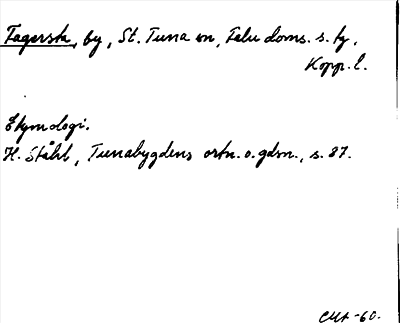 Fagersta, by, St. Tuna sn, Falu doms. s. fg,
Kopp. l.
Etymologi.
H. Ståhl, Tunabygdens ortn. o. gdsn., s. 87.
-60.